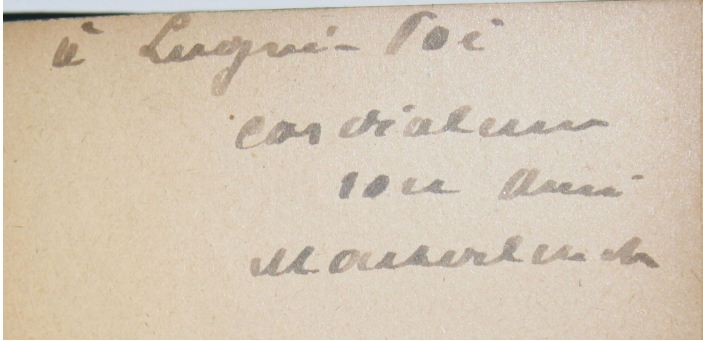 à Lugné-Poe
cordialement
son ami
Maeterlinck